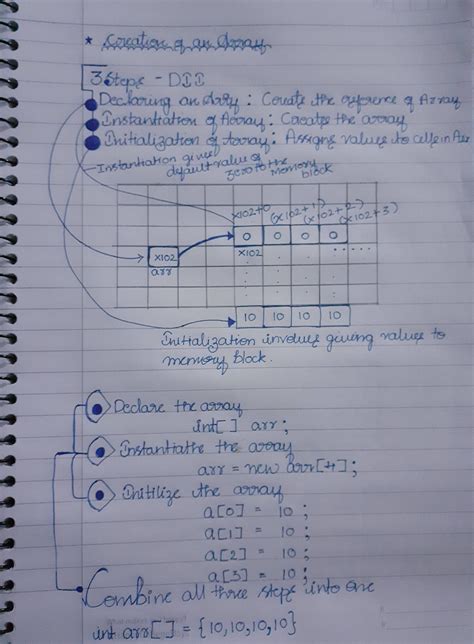 * Creation of an Array
3 Steps - DII
Declaring an Array : Create the reference of Array
Instantiation of Array : Creates the array
Initialization of Array : Assigns values to cells in Arr
Instantiation gives
default value of
zero to the memory
block
x102+0 (x102+1) (x102+2) (x102+3)
x102 0 0 0 0
arr x102
10 10 10 10
Initialization involves giving values to
memory block.
Declare the array
int[] arr ;
Instantiathe the array
arr = new arr[4] ;
Initilize the array
a[0] = 10 ;
a[1] = 10 ;
a[2] = 10 ;
a[3] = 10 ;
Combine all three steps into one
int arr[] = {10,10,10,10}